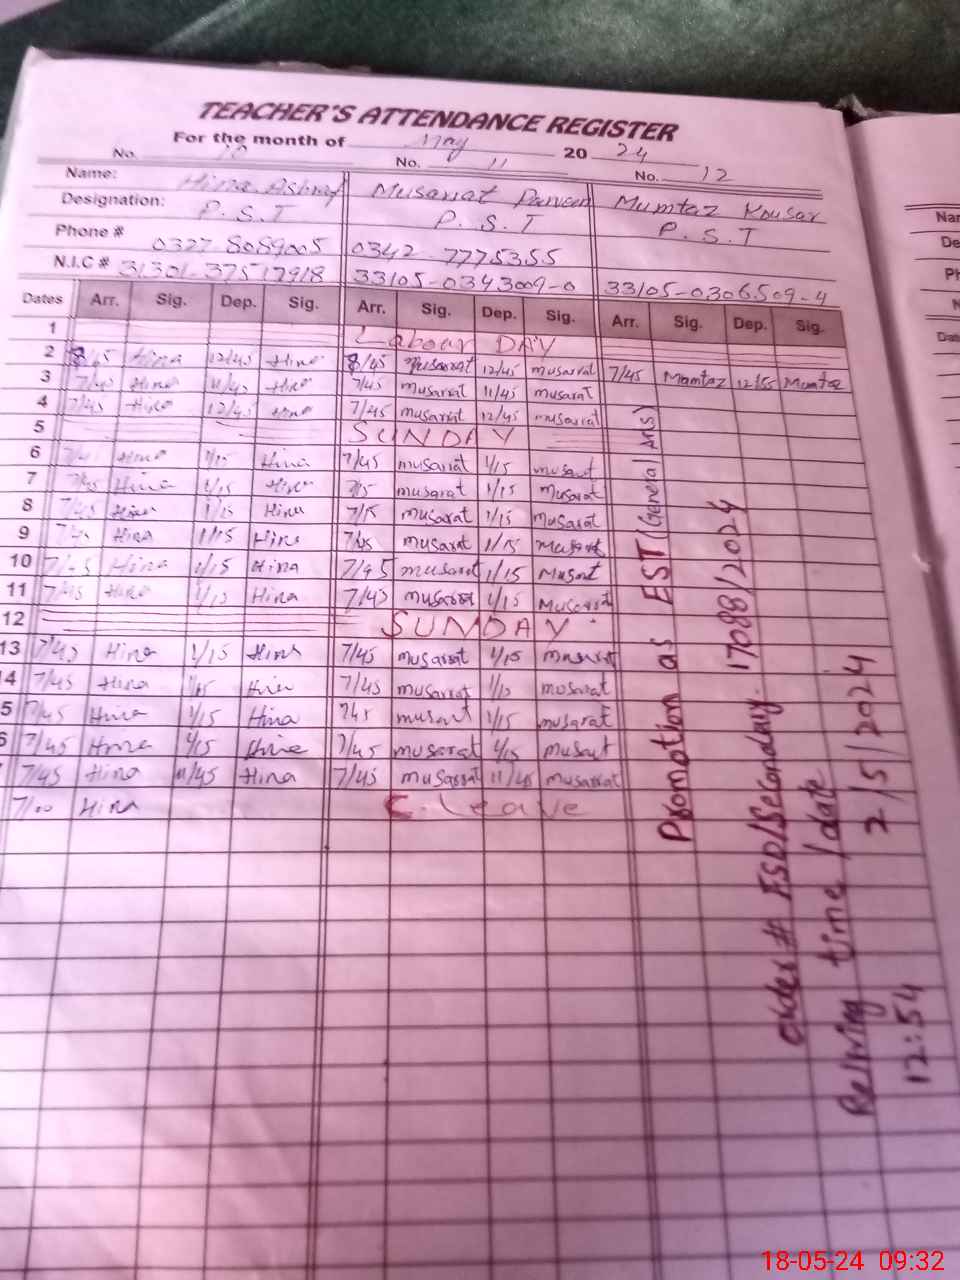 TEACHER'S ATTENDANCE REGISTER
For the month of May 20 24
No. 10 No. 11 No. 12
Name: Hina Ashraf Musarrat Parveen Mumtaz Kousar
Designation: P.S.T P.S.T P.S.T
Phone # 0327 8089005 0342 7775355
N.I.C # 33105-0343009-0 33105-0306509-4
Dates Arr. Sig. Dep. Sig. Arr. Sig. Dep. Sig. Arr. Sig. Dep. Sig.
1 Labour DAY
2 8/45 Hina 12/45 Hina 8/45 Musarrat 12/45 musarrat 7/45 Mumtaz 12/55 Mumtaz
3 7/45 Hina 11/45 Hina 7/45 musarrat 11/45 musarat
4 7/45 Hina 12/45 Hina 7/45 musarrat 12/45 musarrat
5 SUNDAY
6 7/45 Hina 1/15 Hina 7/45 musarrat 1/15 musarrat
7 7/45 Hina 1/15 Hina musarat 1/15 musarat
8 7/45 Hina 1/15 Hina musarat 1/15 musarat
9 Hina 1/15 Hina 7/45 musarat 1/15 Musarat
10 7/45 Hina 1/15 Hina 7/45 musarat 1/15 Musart
11 7/45 Hina 1/15 Hina 7/45 musarrat 1/15 Musarrat
12 SUNDAY
13 7/45 Hina 1/15 Hina 7/45 musarrat 1/15 musarrat
4 7/45 Hina 1/15 Hina 7/45 musarrat musarat
5 7/45 Hina 1/15 Hina 7/45 musarrat 1/15 musarat
6 7/45 Hina 1/15 Hina 7/45 musarat 1/15 musart
7/45 Hina 11/45 Hina 7/45 musarrat 11/45 musarrat
7/00 Hina C. Leave
Promotion as EST (General Arts)
Order # FSD/Secondary. 17088/2024
Reliving time/date
12:54 2/5/2024
Nar
De
Ph
N
Date
18-05-24 09:32